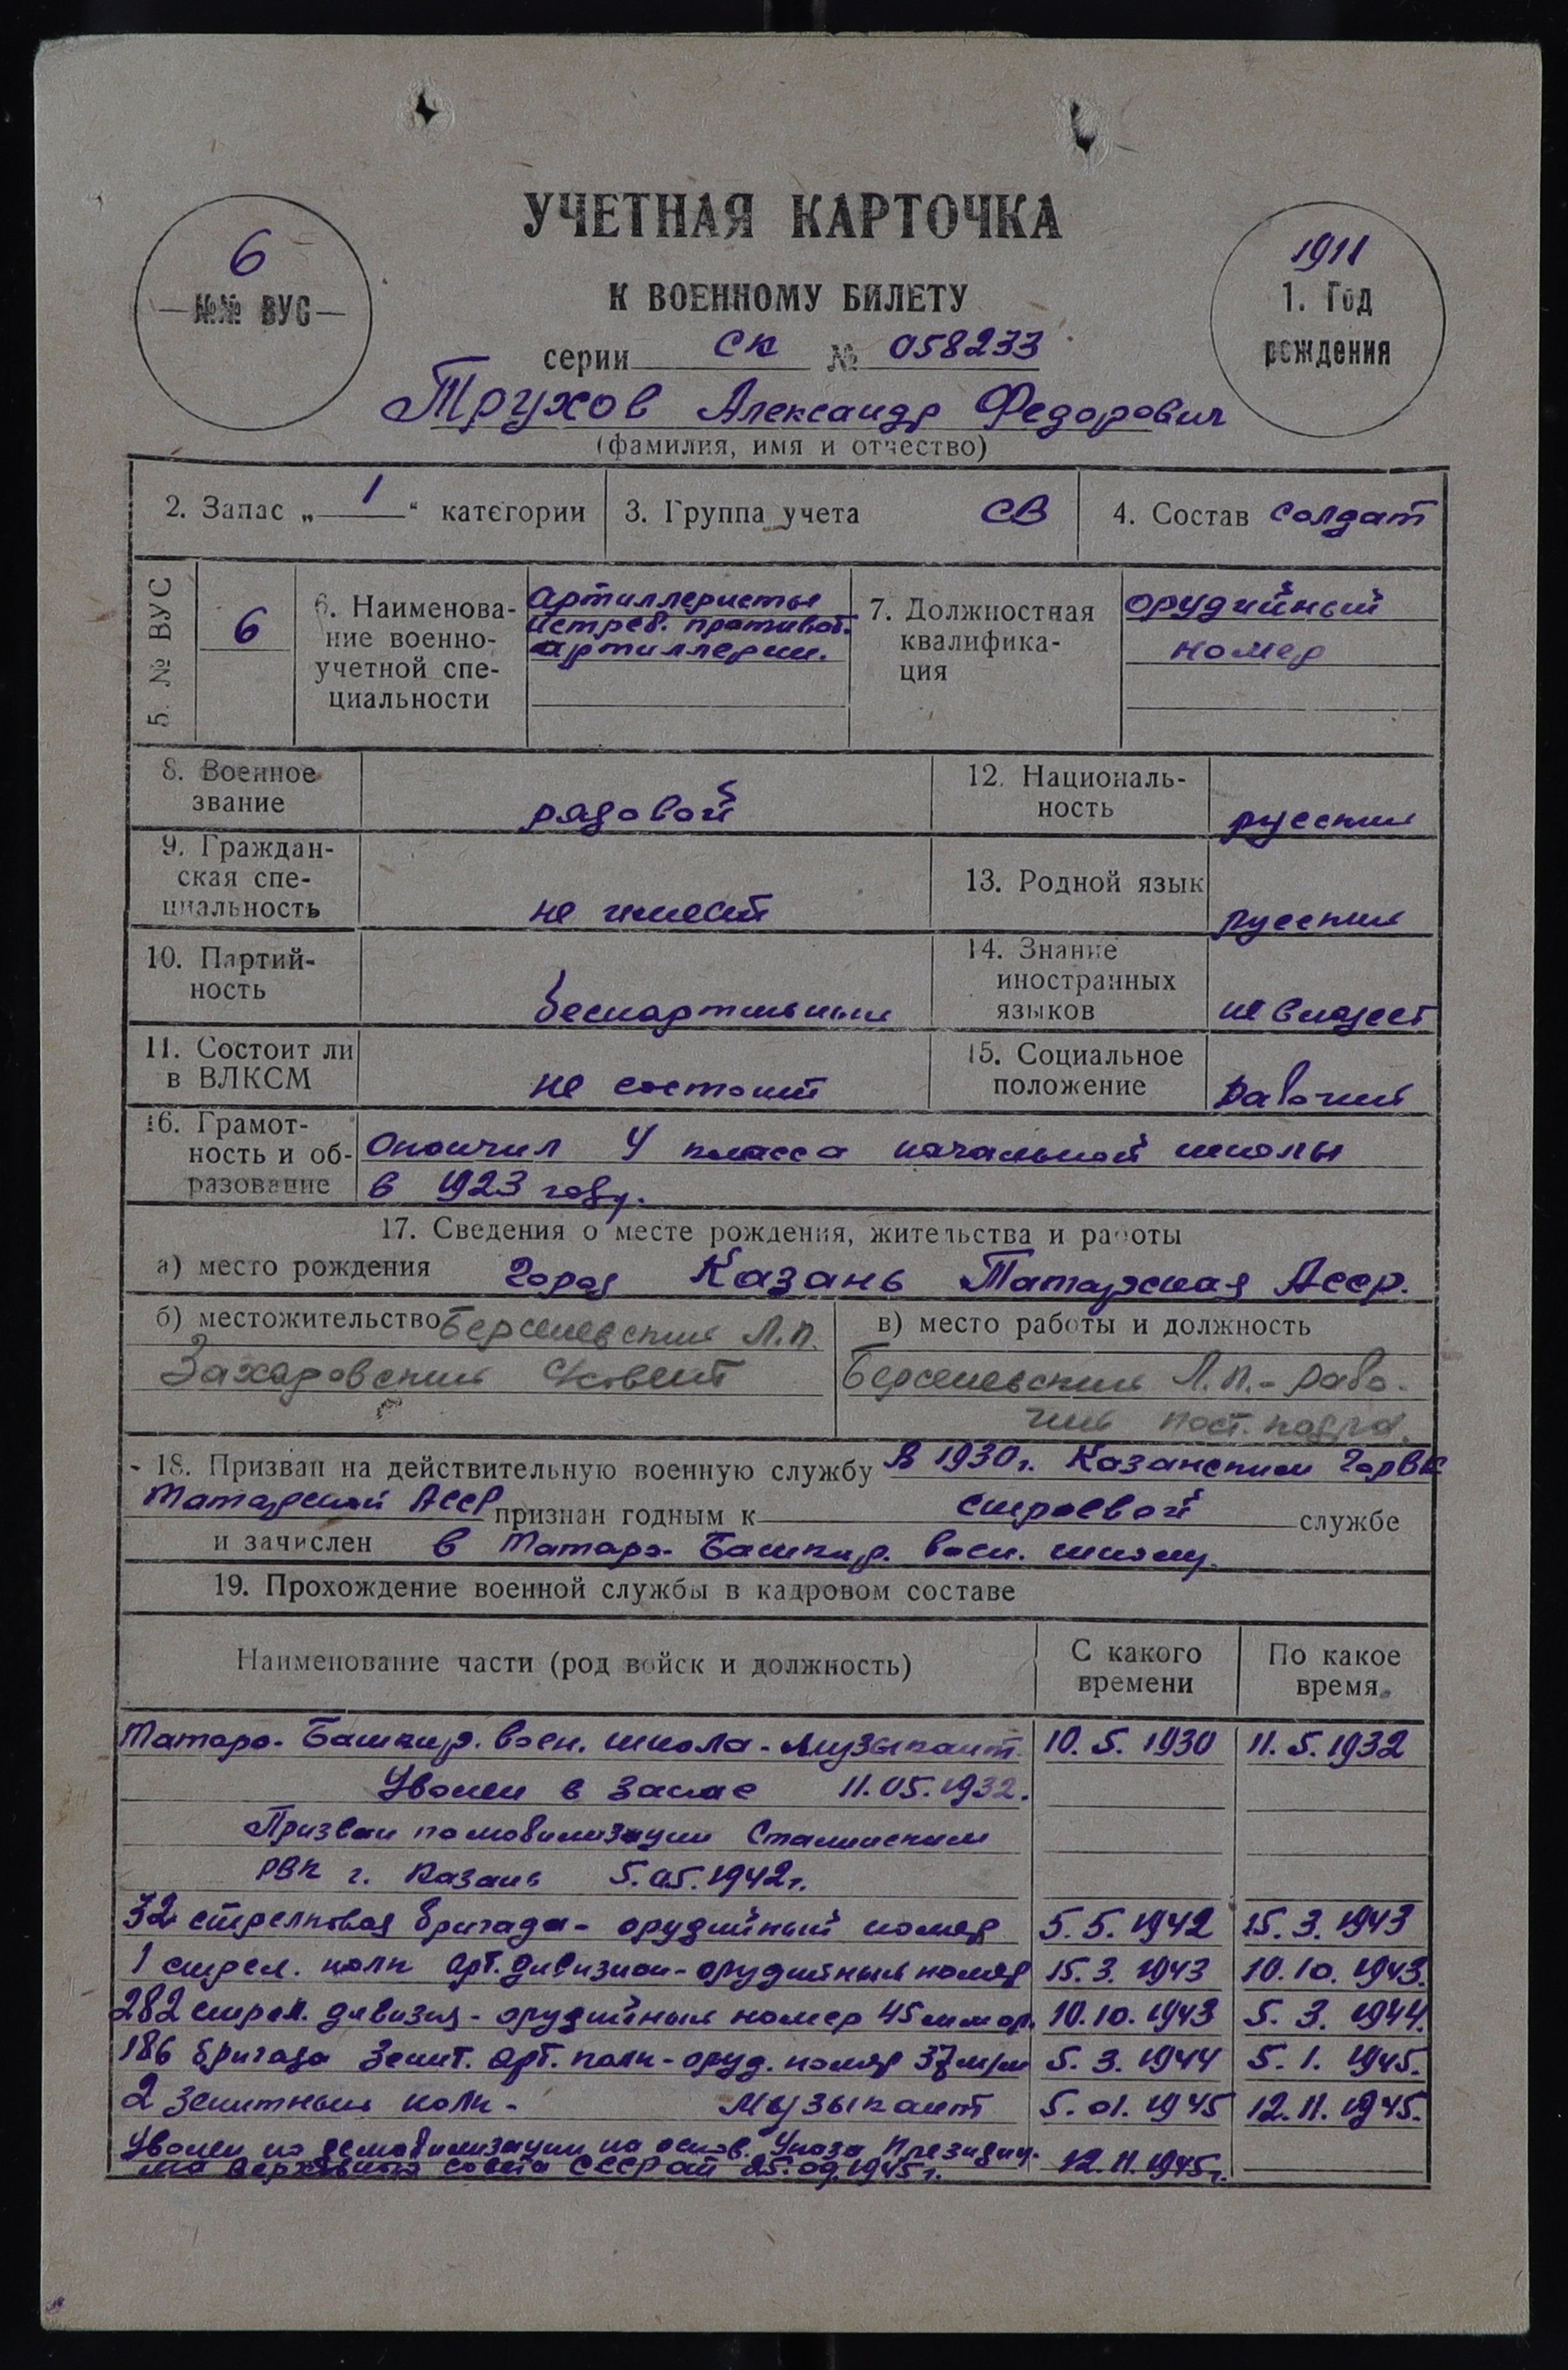 УЧЕТНАЯ КАРТОЧКА
К ВОЕННОМУ БИЛЕТУ
6
№№ ВУС
1911
1. Год
рождения
серии СК № 058233
Трухов Александр Федорович
(фамилия, имя и отчество)
2. Запас „ 1 “ категории
3. Группа учета СВ
4. Состав солдат
5. № ВУС
6
6. Наименова-
ние военно-
учетной спе-
циальности
артиллеристы
истреб. противот.
артиллерии.
7. Должностная
квалифика-
ция
орудийный
номер
8. Военное
звание
рядовой
12. Националь-
ность
русский
9. Граждан-
ская спе-
циальность
не имеет
13. Родной язык
русский
10. Партий-
ность
беспартийный
14. Знание
иностранных
языков
не владеет
11. Состоит ли
в ВЛКСМ
не состоит
15. Социальное
положение
рабочий
16. Грамот-
ность и об-
разование
Окончил 4 класса начальной школы
в 1923 году.
17. Сведения о месте рождения, жительства и работы
а) место рождения город Казань Татарская АССР.
б) местожительство Берсеневский Л.П.
Захаровский с/совет
в) место работы и должность
Берсеневский Л.П.- рабо-
чий
18. Призван на действительную военную службу В 1930г. Казанским ГорВК
Татарской АССР признан годным к строевой службе
и зачислен в Татаро-Башкир. воен. школу.
19. Прохождение военной службы в кадровом составе
Наименование части (род войск и должность)
С какого
времени
По какое
время
Татаро-Башкир. воен. школа - музыкант. 10.5.1930 11.5.1932
Уволен в запас 11.05.1932.
Призван по мобилизации Сталинским
РВК г. Казань 5.05.1942г.
32 стрелковая бригада - орудийный номер 5.5.1942 15.3.1943
1 стрел. полк арт. дивизион - орудийный номер 15.3.1943 10.10.1943.
282 стрел. дивизия - орудийный номер 45 мм ор. 10.10.1943 5.3.1944.
186 бригада зенит. арт. полк - оруд. номер 37 м/м 5.3.1944 5.1.1945.
2 зенитный полк - музыкант 5.01.1945 12.11.1945.
Уволен по демобилизации на основ. Указа Президиу-
ма Верховного совета СССР от 25.09.1945г. 12.11.1945г.